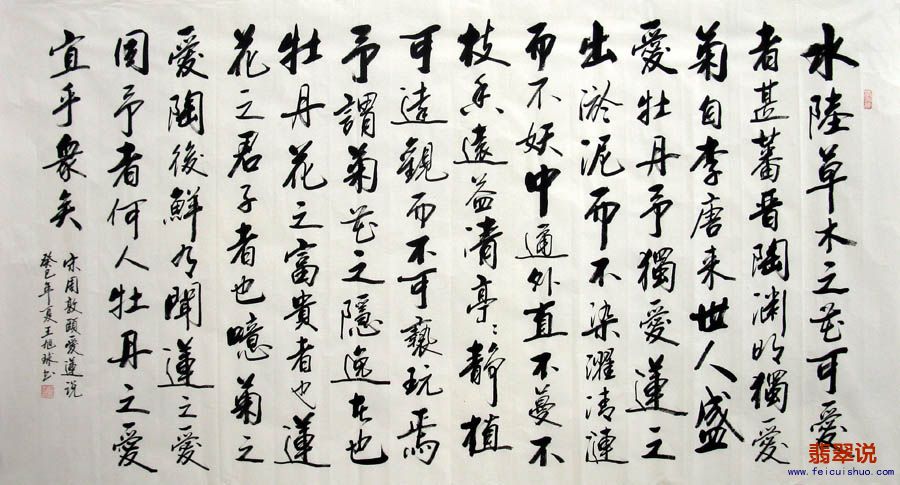 水陸草木之花可愛
者甚蕃晉陶渊明獨愛
菊自李唐来世人盛
愛牡丹予獨愛蓮之
出淤泥而不染濯清漣
而不妖中通外直不蔓不
枝香遠益清亭〻静植
可遠觀而不可褻玩焉
予謂菊花之隱逸者也
牡丹花之富貴者也蓮
花之君子者也噫菊之
愛陶後鮮有聞蓮之愛
同予者何人牡丹之愛
宜乎衆矣
宋周敦頤愛蓮说
癸巳年夏王旭球书
翡翠说
www.feicuishuo.com